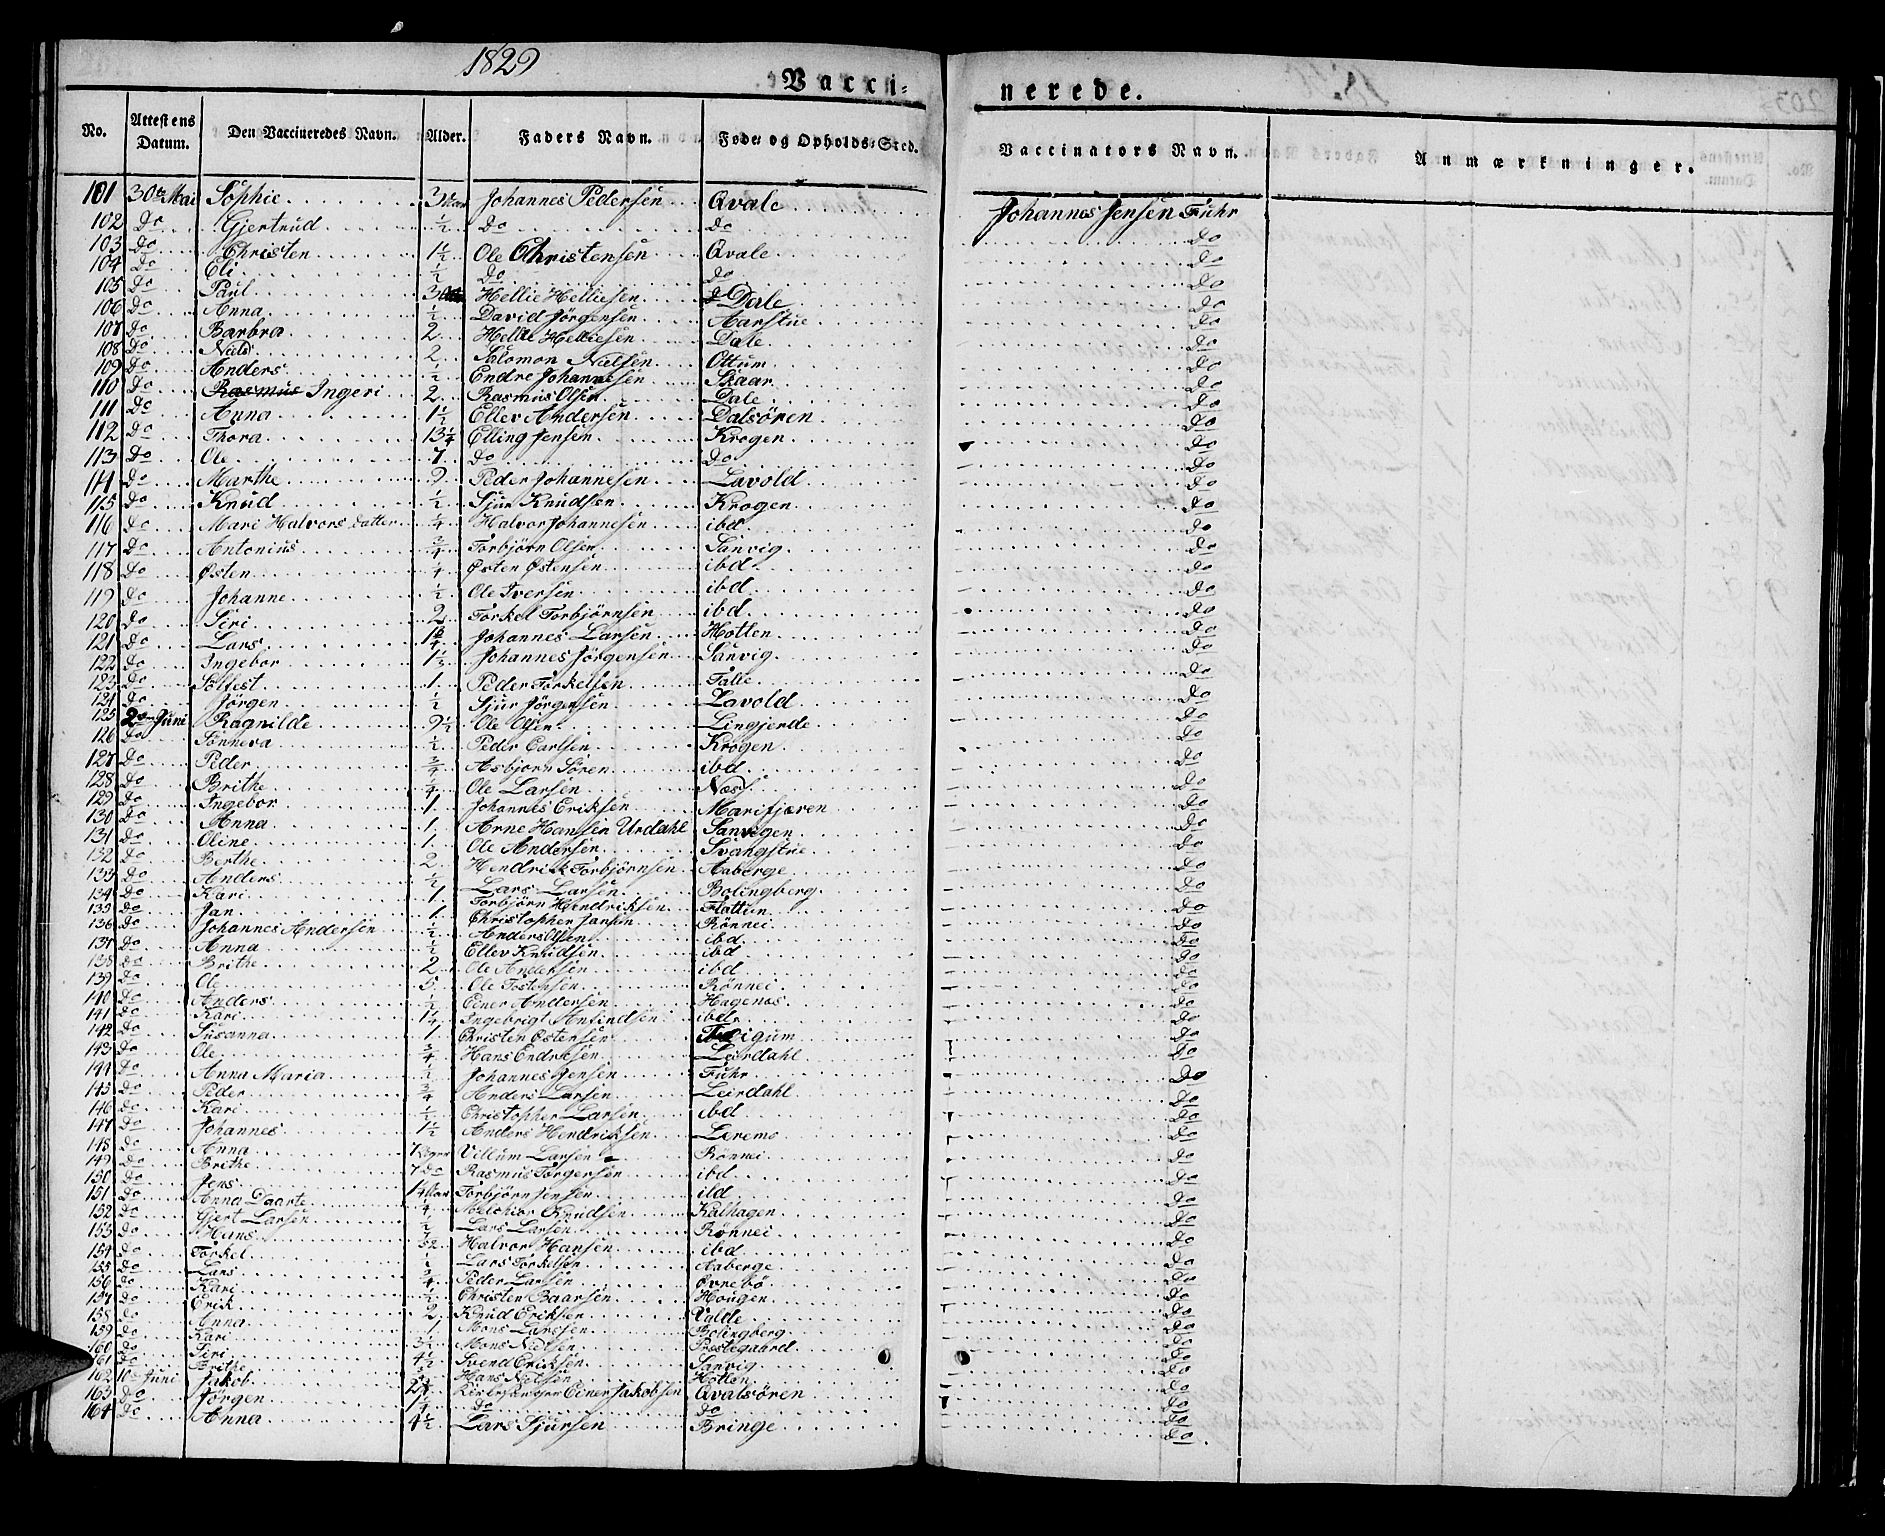 1829
Vacci= nerede.
No. Attestens Datum. Den Vaccineredes Navn. Alder. Faders Navn. Føde= og Opholds=Sted. Vaccinators Navn. Anmærkninger.
101 30te Mai Sophie 3 Johannes Pedersen Qvale Johannes Jensen Fuhr
102 Do Gjertrud 1/2 Do do Do
103 Do Christen 1 1/2 Ole Christensen Qvale Do
104 Do Eli 1/2 Do do Do
105 Do Paul 3 Hellie Helliesen Dale Do
106 Do Anna 1/2 David Jörgensen Aarstue Do
107 Do Barbra 2 Hellie Helliesen Dale Do
108 Do Niels 2 Salomon Nielsen Ottum Do
109 Do Anders 1/2 Endre Johannesen Skaar Do
110 Do Rasmus Ingeri 2 Rasmus Olsen Dale Do
111 Do Anna 1 1/2 Ellev Andersen Dalsören Do
112 Do Thora 13 1/4 Elling Jensen Krogen Do
113 Do Ole 7 Do Do Do
114 Do Marthe 2 Peder Johannesen Lavold Do
115 Do Knud 1/2 Sjur Knudsen Krogen Do
116 Do Mari Halvors datter 1/4 Halvor Johannesen ibd Do
117 Do Antonius 3/4 Torbjörn Olsen Sanvig Do
118 Do Østen 1/4 Østen Østensen ibd Do
119 Do Johanne 1/2 Ole Iversen ibd Do
120 Do Siri 2 Torkel Torbjörnsen ibd Do
121 Do Lars Johannes Larsen Hotten Do
122 Do Ingebor 1 1/2 Johannes Jörgensen Sanvig Do
123 Do Solfest 1 Peder Torkelsen Talle Do
124 Do Jörgen 1/2 Sjur Jörgensen Lavold Do
125 2den Juni Ragnilde 9 1/2 Ole Olsen Lingjerde Do
126 Do Sonneva 1/2 Peder Carlsen Krogen Do
127 Do Peder 3/4 Asbjorn Sören ibd Do
128 Do Brithe 1/4 Ole Larsen Næs Do
129 Do Ingebor 1 Johannes Eriksen Marifjæren Do
130 Do Anna 1 Arne Hansen Urdahl Sanvigen Do
131 Do Oline 1 Ole Andersen Svangstue Do
132 Do Berthe 2 Hendrik Torbjörnsen Aaberge Do
133 Do Anders 1/2 Lars Larsen Bolingberg Do
134 Do Kari 1 Torbjörn Hendriksen Flattun Do
135 Do Jan 1 Christopher Jansen Rönnei Do
136 Do Johannes Andersen 1/2 Anders Olsen ibd Do
137 Do Anna 1/2 Ellev Knudsen ibd Do
138 Do Brithe 2 Ole Andersen ibd Do
139 Do Ole 5 Ole Tostensen Rönnei Do
140 Do Anders 1/2 Einer Andersen Hagenæs Do
141 Do Kari 1 1/4 Ingebrigt Amundsen ibd Do
142 Do Susanna 1 Christen Østensen Feigum Do
143 Do Ole 3/4 Hans Endresen Leirdahl Do
144 Do Anna Maria 1/2 Johannes Jensen Fuhr Do
145 Do Peder 3/4 Anders Larsen Leirdahl Do
146 Do Kari 1/2 Christopher Larsen ibd Do
147 Do Johannes 1 1/2 Anders Hendriksen Leremo Do
148 Do Anna Villum Larsen Rönnei Do
149 Do Brithe 7 Do Rasmus Torgersen ibd Do
150 Do Jens Torbjörn Jensen ibd Do
151 Do Anna Daarte 1/4 Melchior Knudsen Kalhagen Do
152 Do Gjert Larsen 1/2 Lars Larsen Rönnei Do
153 Do Hans Halvor Hansen ibd Do
154 Do Torkel Lars Torkelsen Aaberge Do
155 Do Lars 3/4 Peder Larsen Øvrebö Do
156 Do Kari 1/2 Christen Baarsen Hougen Do
157 Do Erik 2 Knud Eriksen Valde Do
158 Do Anna 1 Mons Larssen Bolingberg Do
159 Do Kari 3 1/2 Mons Nielsen Prestegaard Do
160 Do Siri 4 1/2 Svend Eriksen Sanvig Do
161 Do Brithe Hans Nielsen Hotten Do
162 10de Juni Jakob Einer Jakobsen Qvalsören Do
163 Do Jörgen Do Do Do
164 Do Anna 4 1/2 Lars Sjursen Bringe Do